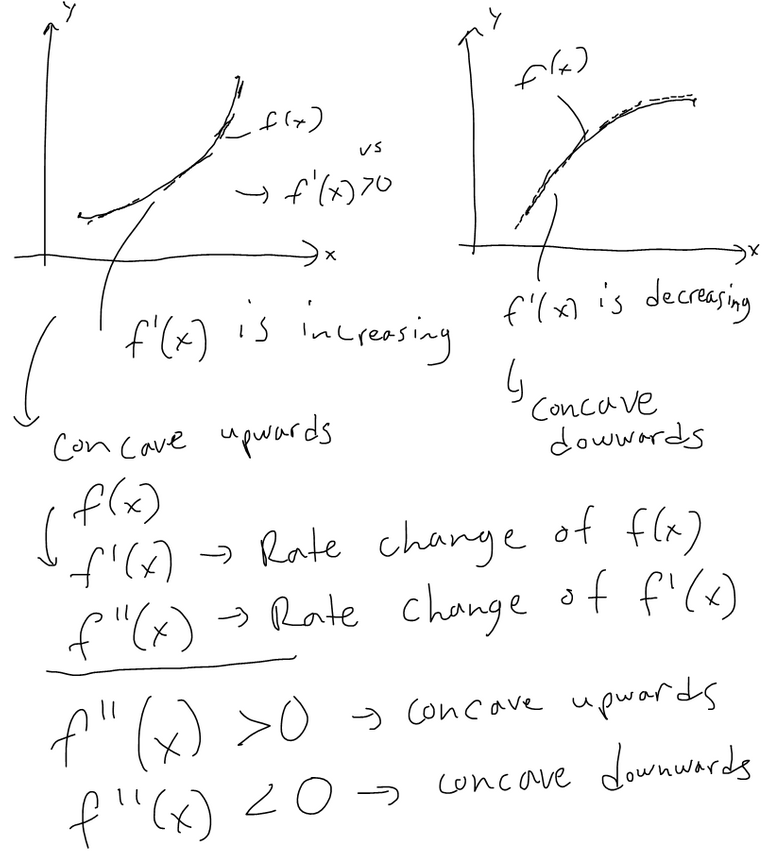 y
f(x)
vs
→ f'(x)>0
x
f'(x) is increasing
concave upwards
y
f(x)
x
f'(x) is decreasing
↳ concave
dowwards
f(x)
f'(x) → Rate change of f(x)
f''(x) → Rate change of f'(x)
f''(x) >0 → concave upwards
f''(x) <0 → concave downwards